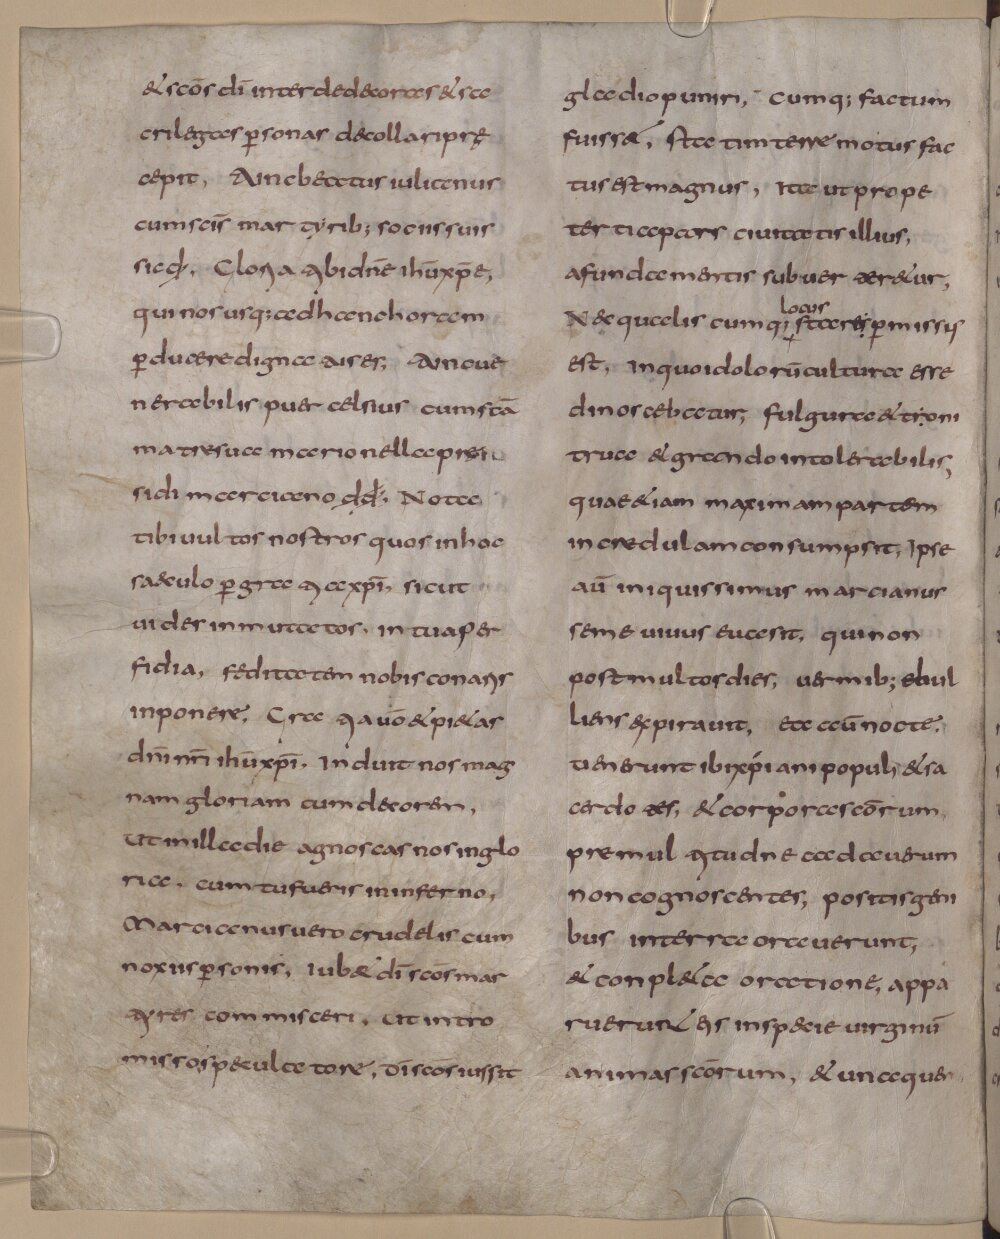 & scōs dī inter dedecoratas & sa
crilegas ꝑsonas decollari prę
cepit. At ubeatus iulianus
cum scīs martyrib; sociis suis
sic
Gloria tibi dn̄e ihū xp̄e,
qui nos usq; ad hanc horam
ꝑducere digna
uenerabilis puer celsius cum scā
matre sua marionella
sidi marciano
Nota
tibi uultos nostros quos in hoc
saeculo ꝑ gratia xp̄i, sicut
uides inmutatos. in tua per
fidia, feditatem nobis conatis
inponere. Gratia & pi&as
dn̄i nr̄i ihū xp̄i. Induit nos mag
nam gloriam cum decorem,
Ut in illa die agnoscas nos in glo
ria. cum tu fueris in inferno.
Marcianus uero crudelis cum
noxiis ꝑsonis, iub& dī scōs mar
tyres commisceri. Ut intro
misso speculatore, dī scōs iussit
gladio puniri, Cumq; factum
fuiss&, statim terre motus fac
tus est magnus, Ita ut prope
tertia pars ciuitatis illius,
a fundamentis subuerter&ur,
Nec qualis cumq; locus stare ꝑmissus
est, in quo idolorū cultura esse
dinoscebatur, fulgura & toni
trua & grando intolerabilis,
quae &iam maximam partem
incredulam consumpsit, Ipse
aū iniquissimus marcianus
semeuiuus euasit, qui non
post multos dies, uermib; ebul
liens expirauit, Ea aū nocte.
uenerunt ibi xp̄iani populi & sa
cerdotes, & corpora scōrum
premul titudine ad auerum
non cognoscentes, positis geni
bus in terra orauerunt,
& conpl&a oratione, appa
ruerunt eis in specie uirginū
animas scōrum, & unaquae